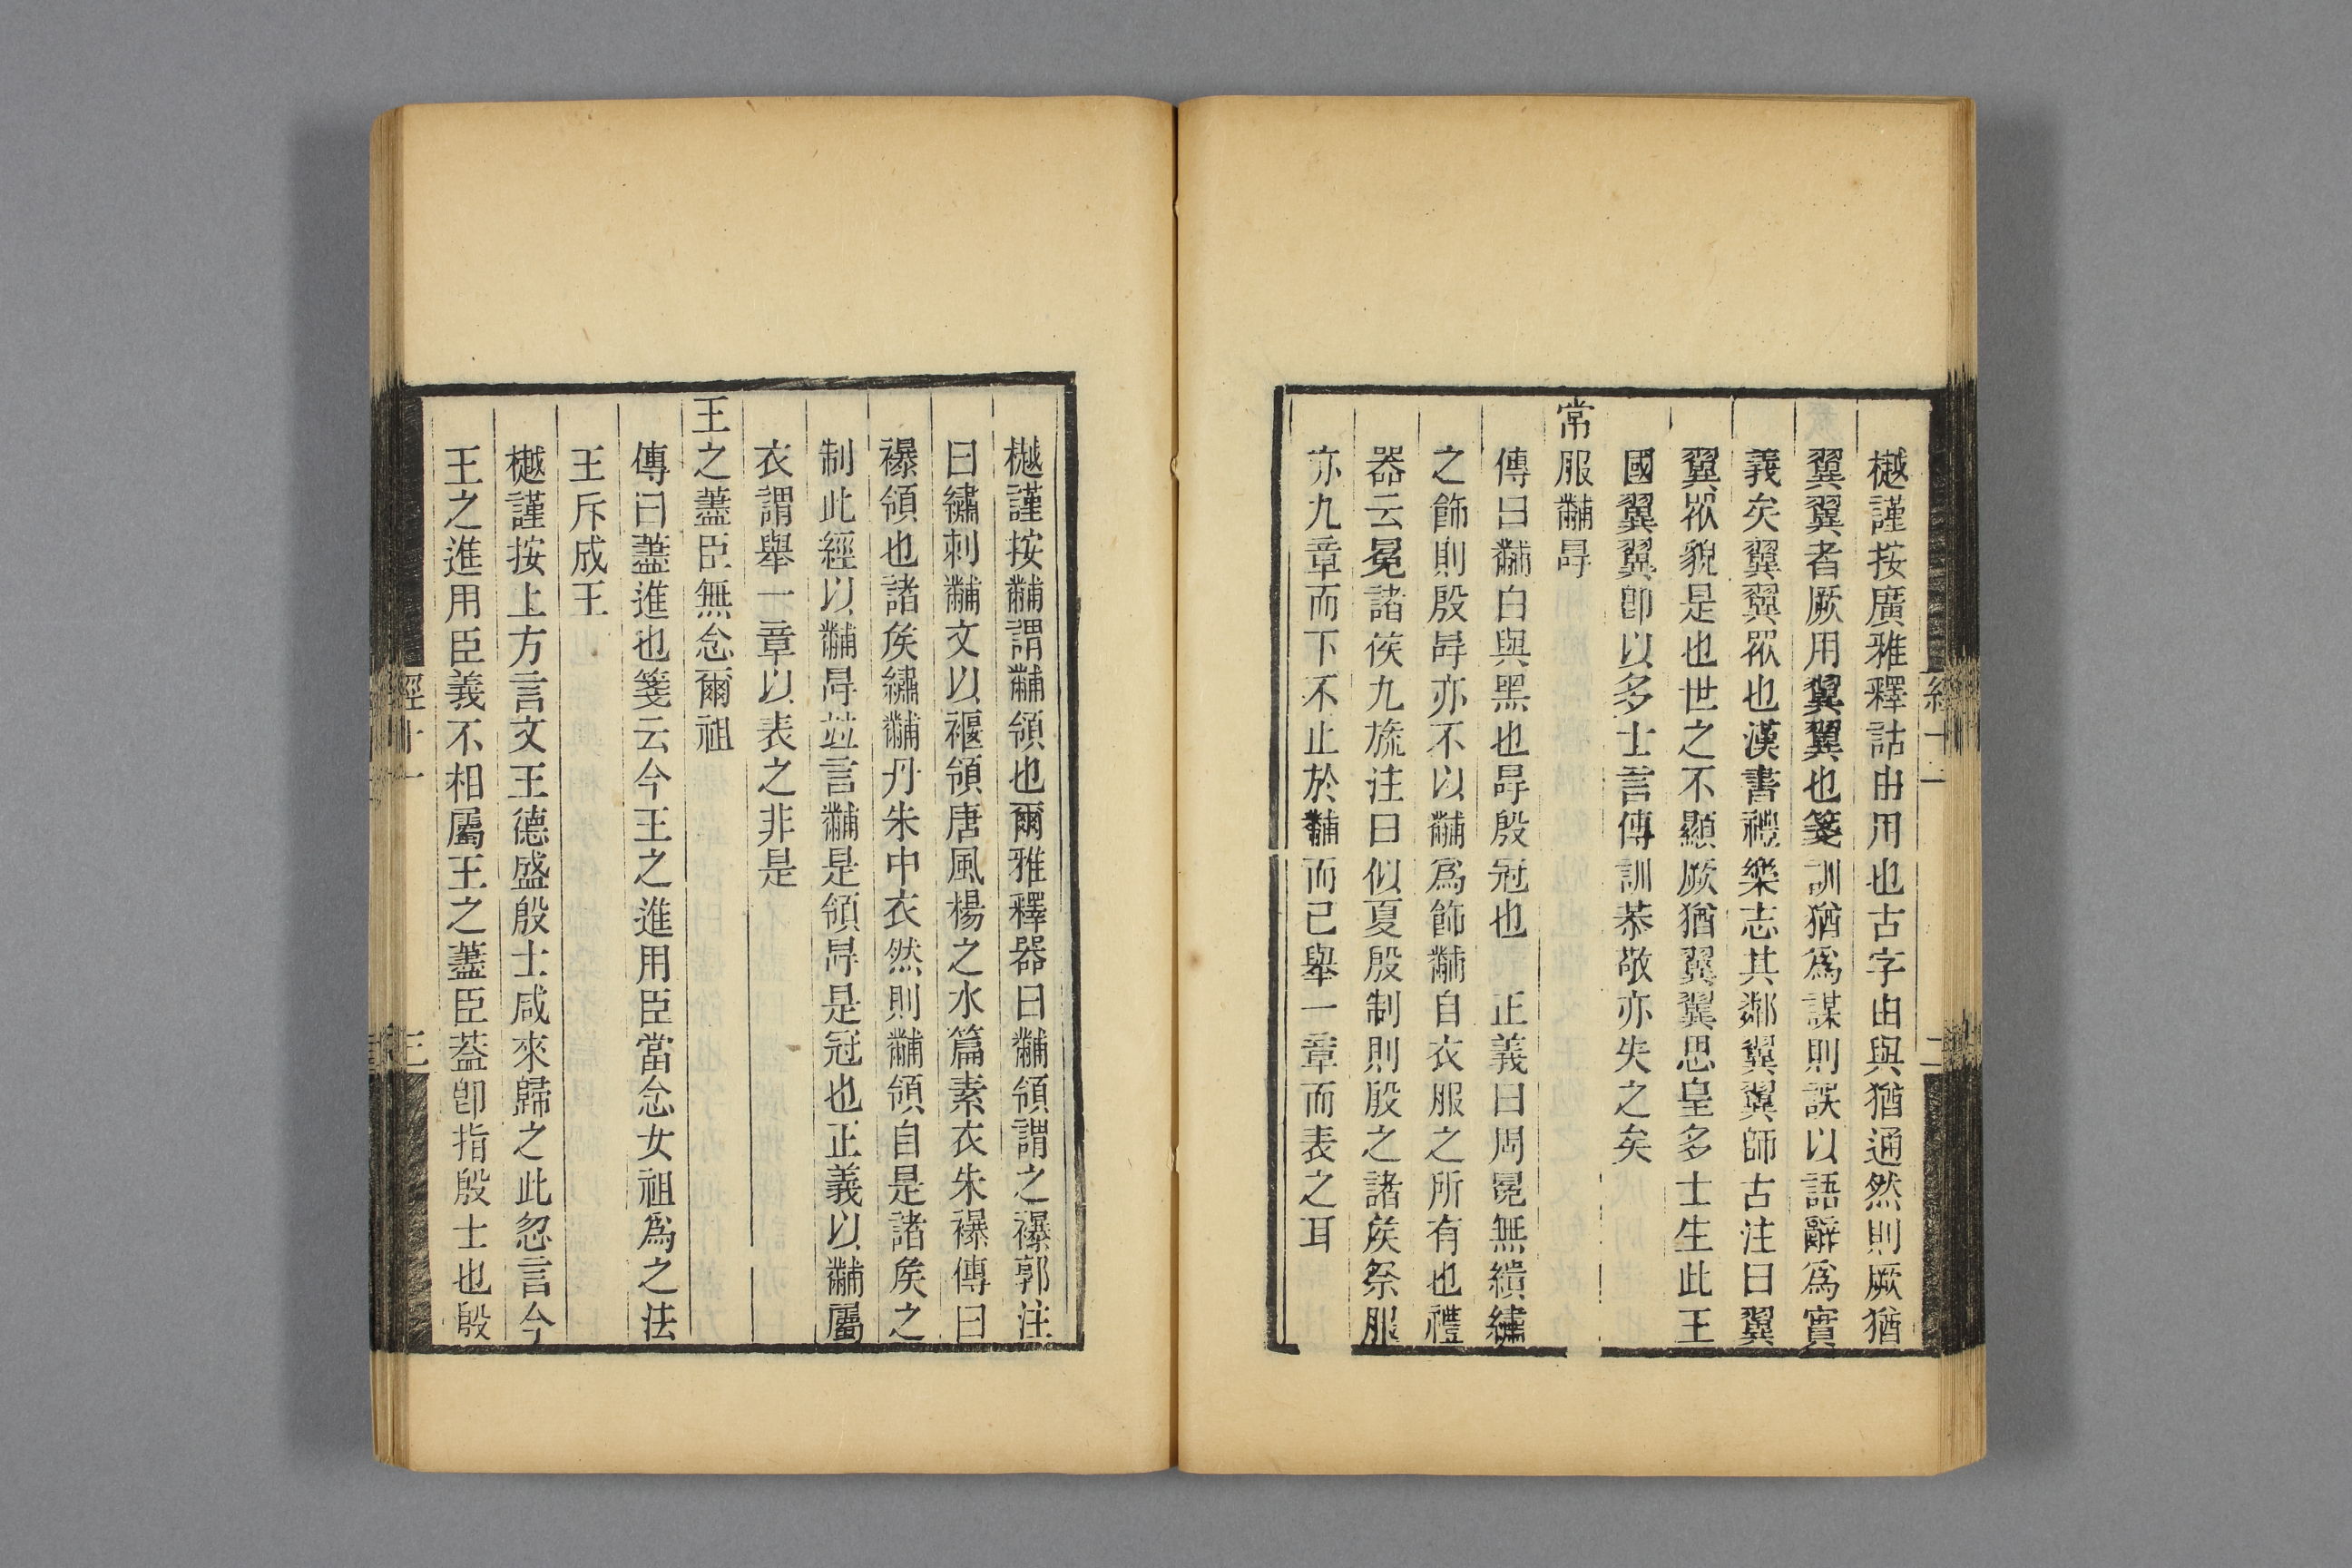 樾謹按廣雅釋詁由用也古字由與猶通然則厥猶
翼翼者厥用翼翼也箋訓猶爲謀則誤以語辭爲實
義矣翼翼眾也漢書禮樂志其鄰翼翼師古注曰翼
翼眾貌是也世之不顯厥猶翼翼思皇多士生此王
國翼翼卽以多士言傳訓恭敬亦失之矣
常服黼冔
傳曰黼白與黑也冔殷冠也　正義曰周冕無繢繡
之飾則殷冔亦不以黼爲飾黼自衣服之所有也禮
器云冕諸侯九旒注曰似夏殷制則殷之諸侯祭服
亦九章而下不止於黼而已舉一章而表之耳
樾謹按黼謂黼領也爾雅釋器曰黼領謂之襮郭注
曰繡刺黼文以褗領唐風楊之水篇素衣朱襮傳曰
襮領也諸侯繡黼丹朱中衣然則黼領自是諸侯之
制此經以黼冔竝言黼是領冔是冠也正義以黼屬
衣謂舉一章以表之非是
王之藎臣無念爾祖
傳曰藎進也箋云今王之進用臣當念女祖爲之法
王斥成王
樾謹按上方言文王德盛殷士咸來歸之此忽言今
王之進用臣義不相屬王之藎臣葢卽指殷士也殷
經十一
三
二